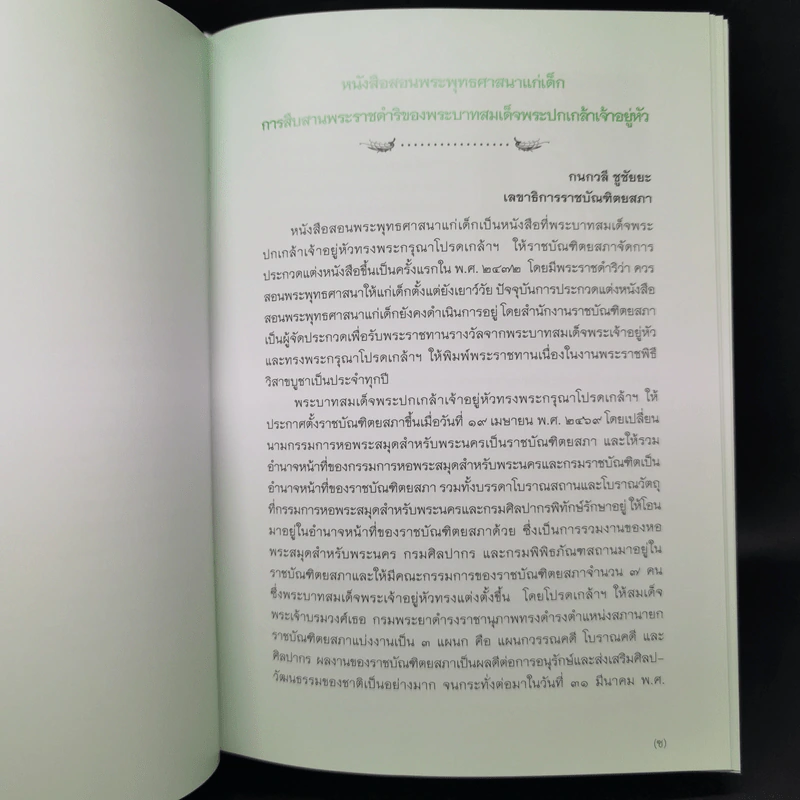 หนังสือสอนพระพุทธศาสนาแก่เด็ก
การสืบสานพระราชดำริของพระบาทสมเด็จพระปกเกล้าเจ้าอยู่หัว
กนกวลี ชูชัยยะ
เลขาธิการราชบัณฑิตยสภา
หนังสือสอนพระพุทธศาสนาแก่เด็กเป็นหนังสือที่พระบาทสมเด็จพระ
ปกเกล้าเจ้าอยู่หัวทรงพระกรุณาโปรดเกล้าฯ ให้ราชบัณฑิตยสภาจัดการ
ประกวดแต่งหนังสือขึ้นเป็นครั้งแรกใน พ.ศ. ๒๔๗๒ โดยมีพระราชดำริว่า ควร
สอนพระพุทธศาสนาให้แก่เด็กตั้งแต่ยังเยาว์วัย ปัจจุบันการประกวดแต่งหนังสือ
สอนพระพุทธศาสนาแก่เด็กยังคงดำเนินการอยู่ โดยสำนักงานราชบัณฑิตยสภา
เป็นผู้จัดประกวดเพื่อรับพระราชทานรางวัลจากพระบาทสมเด็จพระเจ้าอยู่หัว
และทรงพระกรุณาโปรดเกล้าฯ ให้พิมพ์พระราชทานเนื่องในงานพระราชพิธี
วิสาขบูชาเป็นประจำทุกปี
พระบาทสมเด็จพระปกเกล้าเจ้าอยู่หัวทรงพระกรุณาโปรดเกล้าฯ ให้
ประกาศตั้งราชบัณฑิตยสภาขึ้นเมื่อวันที่ ๑๙ เมษายน พ.ศ. ๒๔๖๙ โดยเปลี่ยน
นามกรรมการหอพระสมุดสำหรับพระนครเป็นราชบัณฑิตยสภา และให้รวม
อำนาจหน้าที่ของกรรมการหอพระสมุดสำหรับพระนครและกรมราชบัณฑิตเป็น
อำนาจหน้าที่ของราชบัณฑิตยสภา รวมทั้งบรรดาโบราณสถานและโบราณวัตถุ
ที่กรรมการหอพระสมุดสำหรับพระนครและกรมศิลปากรพิทักษ์รักษาอยู่ ให้โอน
มาอยู่ในอำนาจหน้าที่ของราชบัณฑิตยสภาด้วย ซึ่งเป็นการรวมงานของหอ
พระสมุดสำหรับพระนคร กรมศิลปากร และกรมพิพิธภัณฑสถานมาอยู่ใน
ราชบัณฑิตยสภาและให้มีคณะกรรมการของราชบัณฑิตยสภาจำนวน ๗ คน
ซึ่งพระบาทสมเด็จพระเจ้าอยู่หัวทรงแต่งตั้งขึ้น โดยโปรดเกล้าฯ ให้สมเด็จ
พระเจ้าบรมวงศ์เธอ กรมพระยาดำรงราชานุภาพทรงดำรงตำแหน่งสภานายก
ราชบัณฑิตยสภาแบ่งงานเป็น ๓ แผนก คือ แผนกวรรณคดี โบราณคดี และ
ศิลปากร ผลงานของราชบัณฑิตยสภาเป็นผลดีต่อการอนุรักษ์และส่งเสริมศิลป-
วัฒนธรรมของชาติเป็นอย่างมาก จนกระทั่งต่อมาในวันที่ ๓๑ มีนาคม พ.ศ.
(ช)